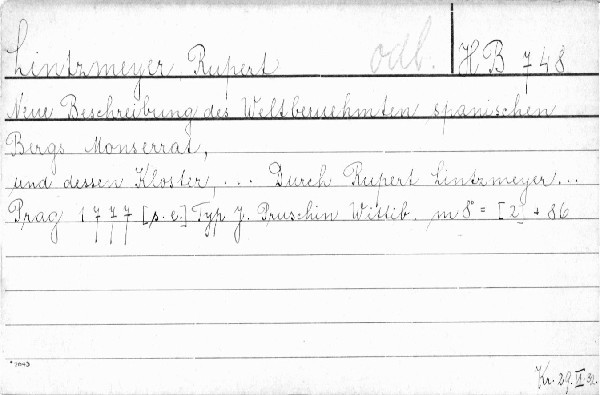 Lintzmeyer Rupert odb. HB 748
Neue Beschreibung des Weltberuehmten spanischen
Bergs Monserrat,
und dessen Kloster, ... Durch Rupert Lintzmeyer...
Prag 1777 [s. e.] Typ J. Pruschin Wittib. m 8° = [2] + 86
Kr. 29.VI.32.